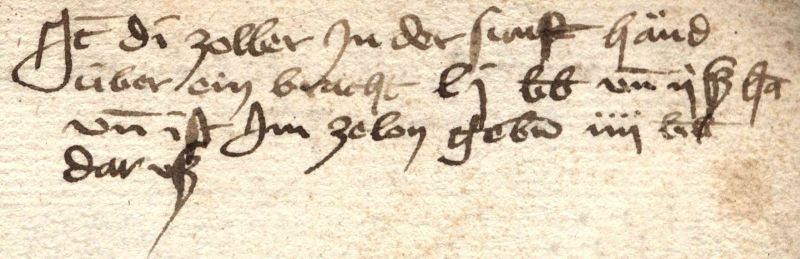 It di zoller In der sunst händ
über ein bracht lj lb vn ij ß ha
vn ist Im zelon gebn iiij lb
dar vß